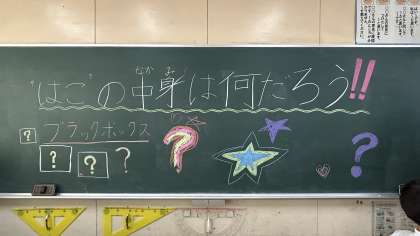 "はこ"の中身は何だろう!!
なか み
? ブラックボックス ?
? ? ? ?